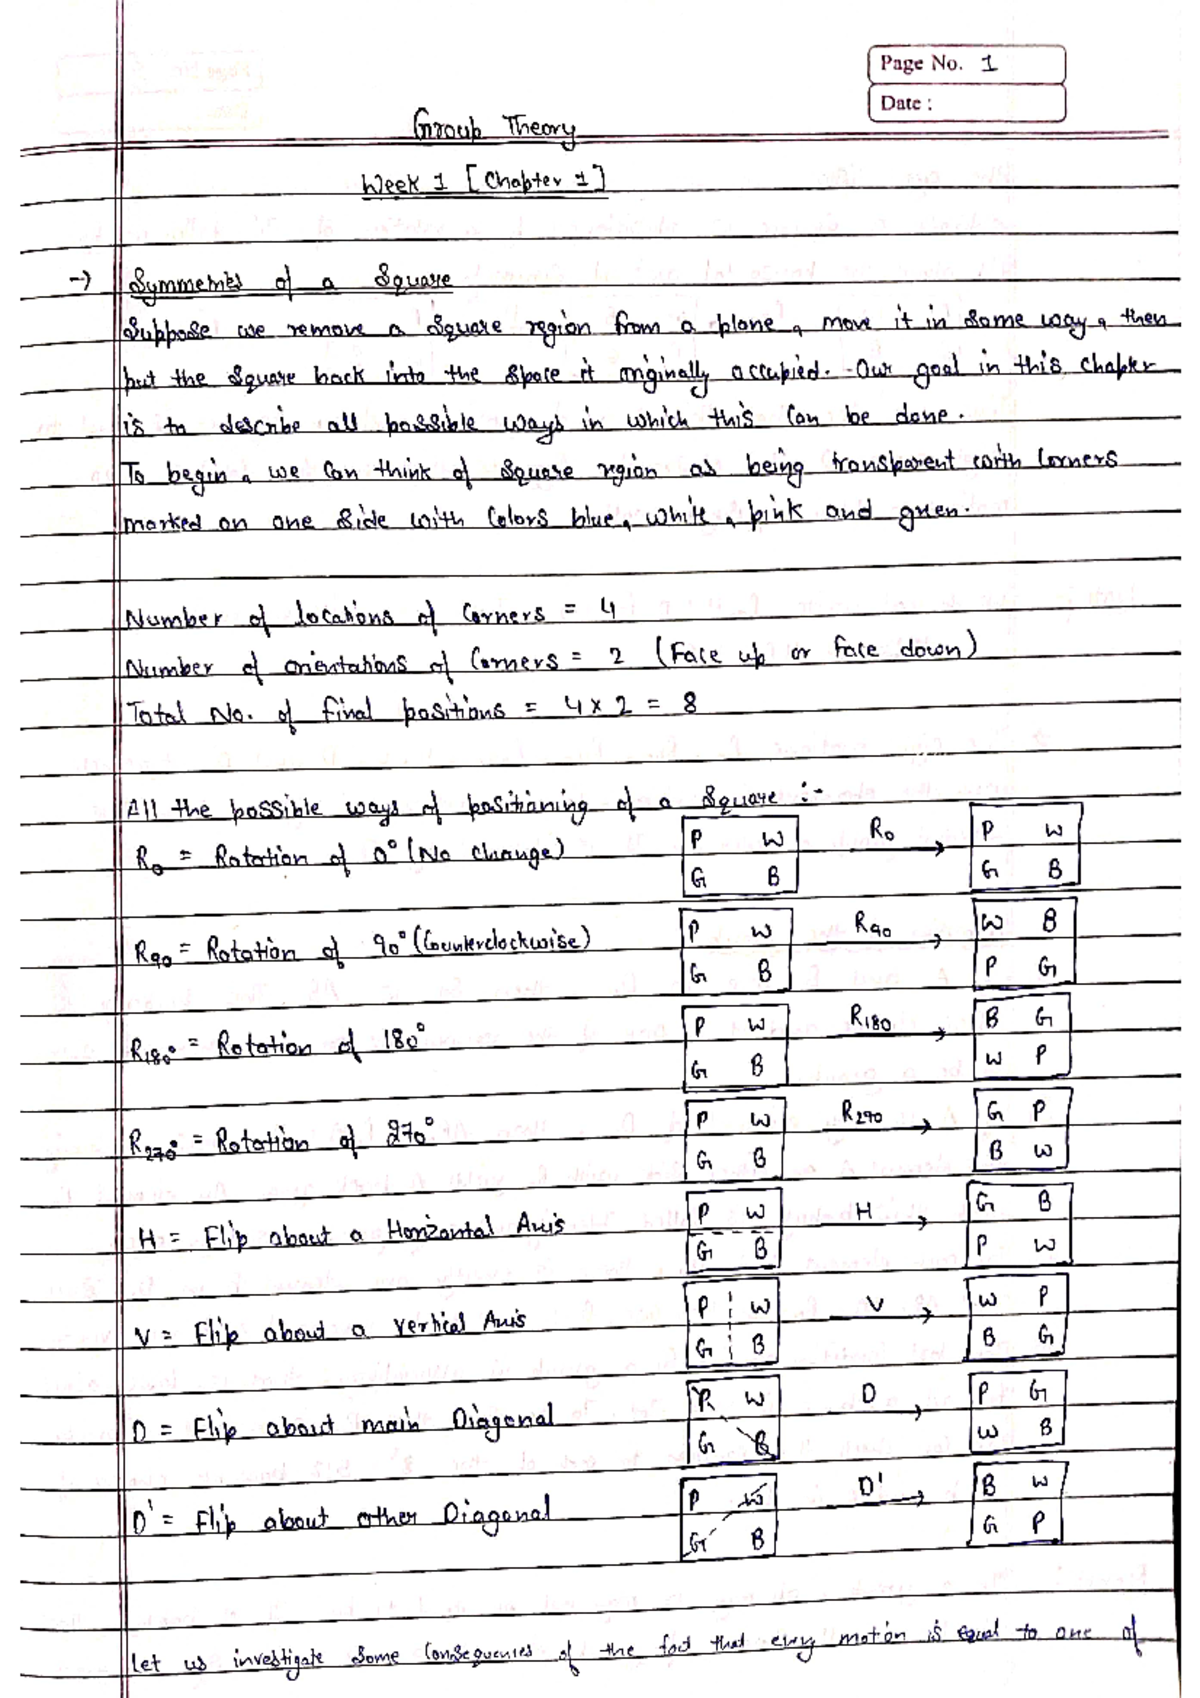 Page No. 1
Date :
Group Theory
Week 1 [Chapter 1]
→ Symmetries of a Square
Suppose we remove a square region from a plane, move it in some way, then
put the square back into the space it originally occupied. Our goal in this chapter
is to describe all possible ways in which this can be done.
To begin, we can think of square region as being transparent with corners
marked on one side with colors blue, white, pink and green.
Number of locations of corners = 4
Number of orientations of corners = 2 (Face up or face down)
Total No. of final positions = 4 × 2 = 8
All the possible ways of positioning of a square :-
R₀ = Rotation of 0° (No change) P W R₀ → P W
G B G B
R₉₀ = Rotation of 90° (Counterclockwise) P W R₉₀ → W B
G B P G
R₁₈₀° = Rotation of 180° P W R₁₈₀ → B G
G B W P
R₂₇₀° = Rotation of 270° P W R₂₇₀ → G P
G B B W
H = Flip about a Horizontal Axis P W H → G B
G B P W
V = Flip about a vertical Axis P W V → W P
G B B G
D = Flip about main Diagonal P W D → P G
G B W B
D' = Flip about other Diagonal P W D' → B W
G B G P
Let us investigate some consequences of the fact that every motion is equal to one of